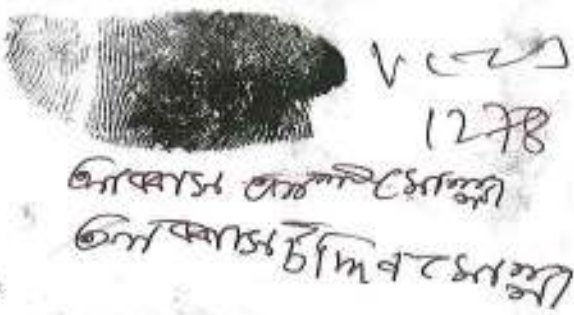 1278
আব্বাস আলী মোল্লা
আব্বাস উদ্দিন মোল্লা